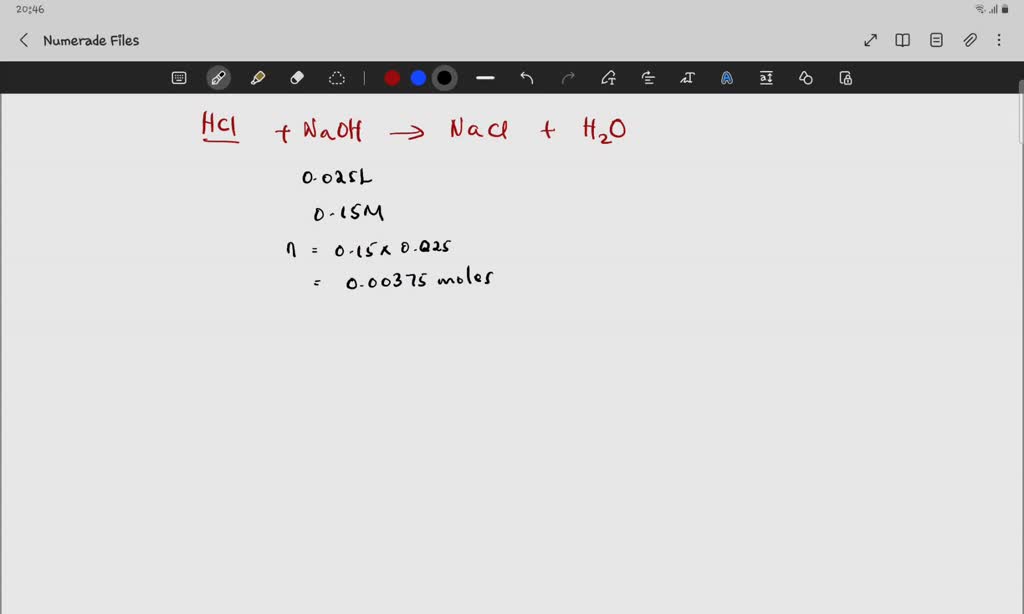 20:46
Numerade Files
HCl + NaOH → NaCl + H₂O
0.025L
0.15M
n = 0.15 x 0.025
= 0.00375 moles